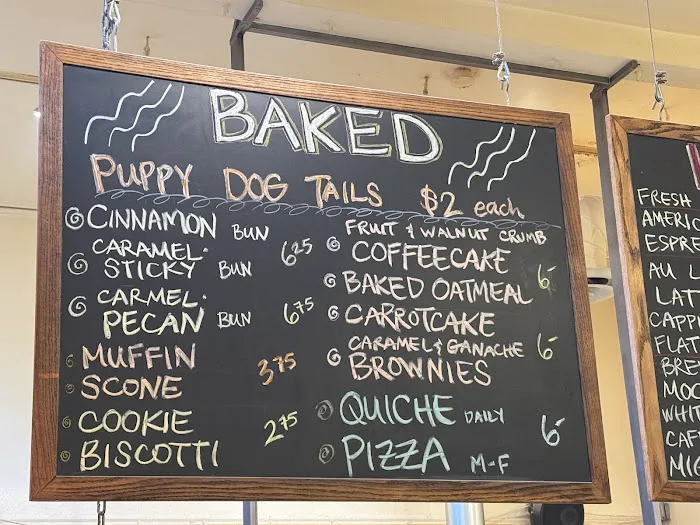 BAKED
PUPPY DOG TAILS $2 each
CINNAMON BUN
CARAMEL
STICKY BUN 6.25
CARMEL
PECAN BUN 6.75
MUFFIN
SCONE 3.75
COOKIE
BISCOTTI 2.75
FRUIT & WALNUT CRUMB
COFFEECAKE
BAKED OATMEAL 6-
CARROTCAKE
CARAMEL & GANACHE 6-
BROWNIES
QUICHE DAILY
PIZZA M-F 6-
FRESH
AMERI
ESPRE
AU L
LATT
CAPP
FLAT
BRE
MOC
WHIT
CAF
MI